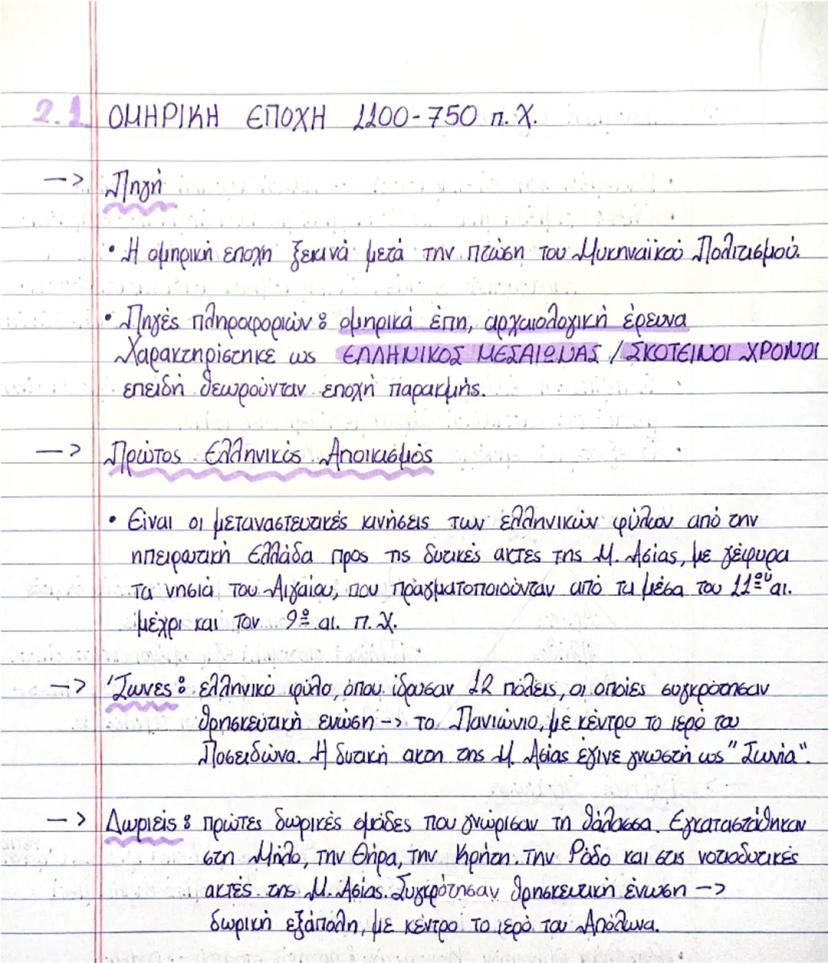 2.1. ΟΜΗΡΙΚΗ ΕΠΟΧΗ 1100-750 π.Χ.
-> Πηγή
• Η ομηρική εποχή ξεκινά μετά την πτώση του Μυκηναϊκού Πολιτισμού.
• Πηγές πληροφοριών: ομηρικά έπη, αρχαιολογική έρευνα
Χαρακτηρίστηκε ως ΕΛΛΗΝΙΚΟΣ ΜΕΣΑΙΩΝΑΣ / ΣΚΟΤΕΙΝΟΙ ΧΡΟΝΟΙ
επειδή θεωρούνταν εποχή παρακμής.
-> Πρώτος Ελληνικός Αποικισμός
• Είναι οι μεταναστευτικές κινήσεις των ελληνικών φύλων από την
ηπειρωτική Ελλάδα προς τις δυτικές ακτές της Μ. Ασίας, με γέφυρα
τα νησιά του Αιγαίου, που πραγματοποιούνταν από τα μέσα του 11ου αι.
μέχρι και τον 9ο αι. π.Χ.
-> Ίωνες: ελληνικό φύλο, όπου ίδρυσαν 12 πόλεις, οι οποίες συγκρότησαν
θρησκευτική ένωση -> το Πανιώνιο, με κέντρο το ιερό του
Ποσειδώνα. Η δυτική ακτή της Μ. Ασίας έγινε γνωστή ως "Ιωνία".
-> Δωριείς: πρώτες δωρικές ομάδες που γνώρισαν τη θάλασσα. Εγκαταστάθηκαν
στη Μήλο, την Θήρα, την Κρήτη. την Ρόδο και στις νοτιοδυτικές
ακτές της Μ. Ασίας. Συγκρότησαν θρησκευτική ένωση ->
δωρική εξάπολη, με κέντρο το ιερό του Απόλωνα.